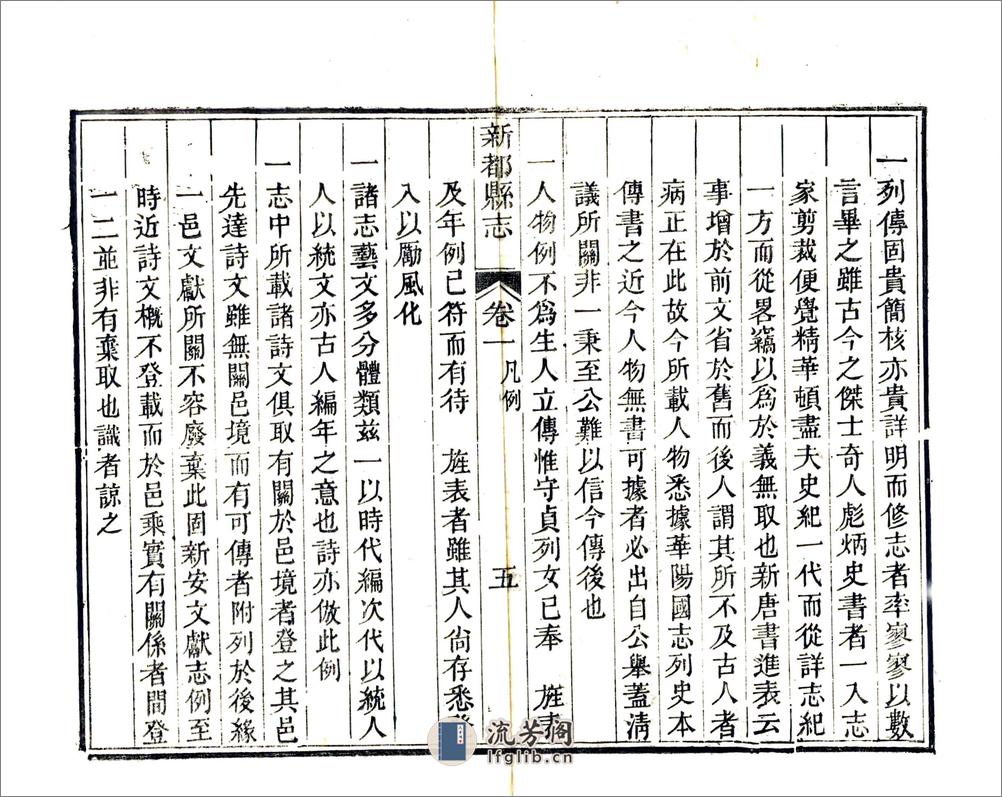 一列傳固貴簡核亦貴詳明而修志者率寥寥以數
言畢之雖古今之傑士奇人彪炳史書者一入志
家剪裁便覺精華頓盡夫史紀一代而從詳志紀
一方而從畧竊以爲於義無取也新唐書進表云
事增於前文省於舊而後人謂其所不及古人者
病正在此故今所載人物悉據華陽國志列史本
傳書之近今人物無書可據者必出自公舉蓋淸
議所關非一秉至公難以信今傳後也
一人物例不爲生人立傳惟守貞列女已奉 旌表
新都縣志 卷一 凡例 五
及年例已符而有待 旌表者雖其人尙存悉
入以勵風化
一諸志藝文多分體類兹一以時代編次代以統人
人以統文亦古人編年之意也詩亦倣此例
一志中所載諸詩文俱取有關於邑境者登之其邑
先達詩文雖無關邑境而有可傳者附列於後緣
一邑文獻所關不容廢棄此固新安文獻志例至
時近詩文槪不登載而於邑乘實有關係者間登
一二並非有棄取也識者諒之
流芳閣
lfglib.cn